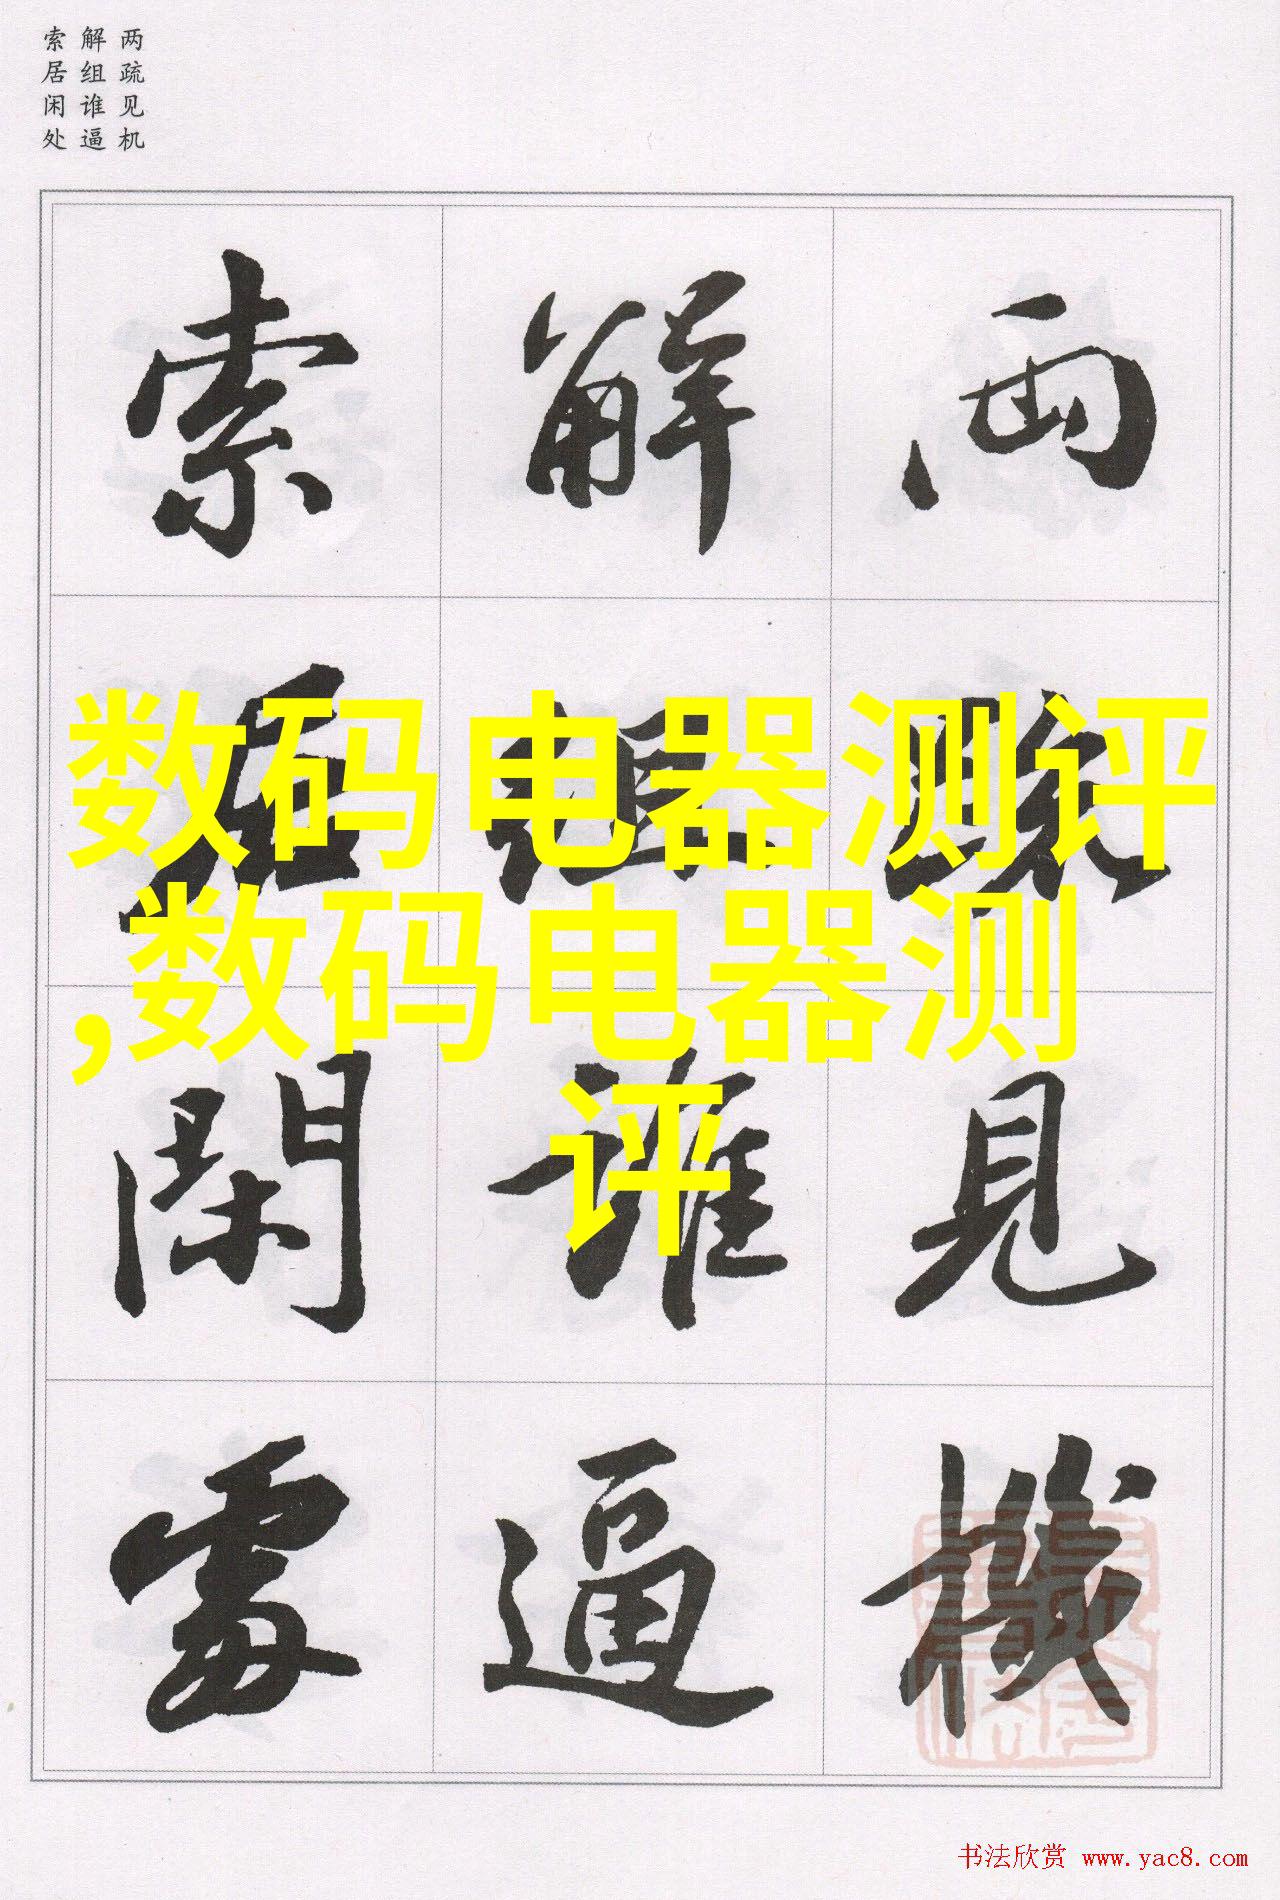 两疏见机
解组谁逼
索居闲处
兩疏見機
解組誰逼
索居閑處
数码电器测评
,数码电器测
评
书法欣赏 www.yac8.com